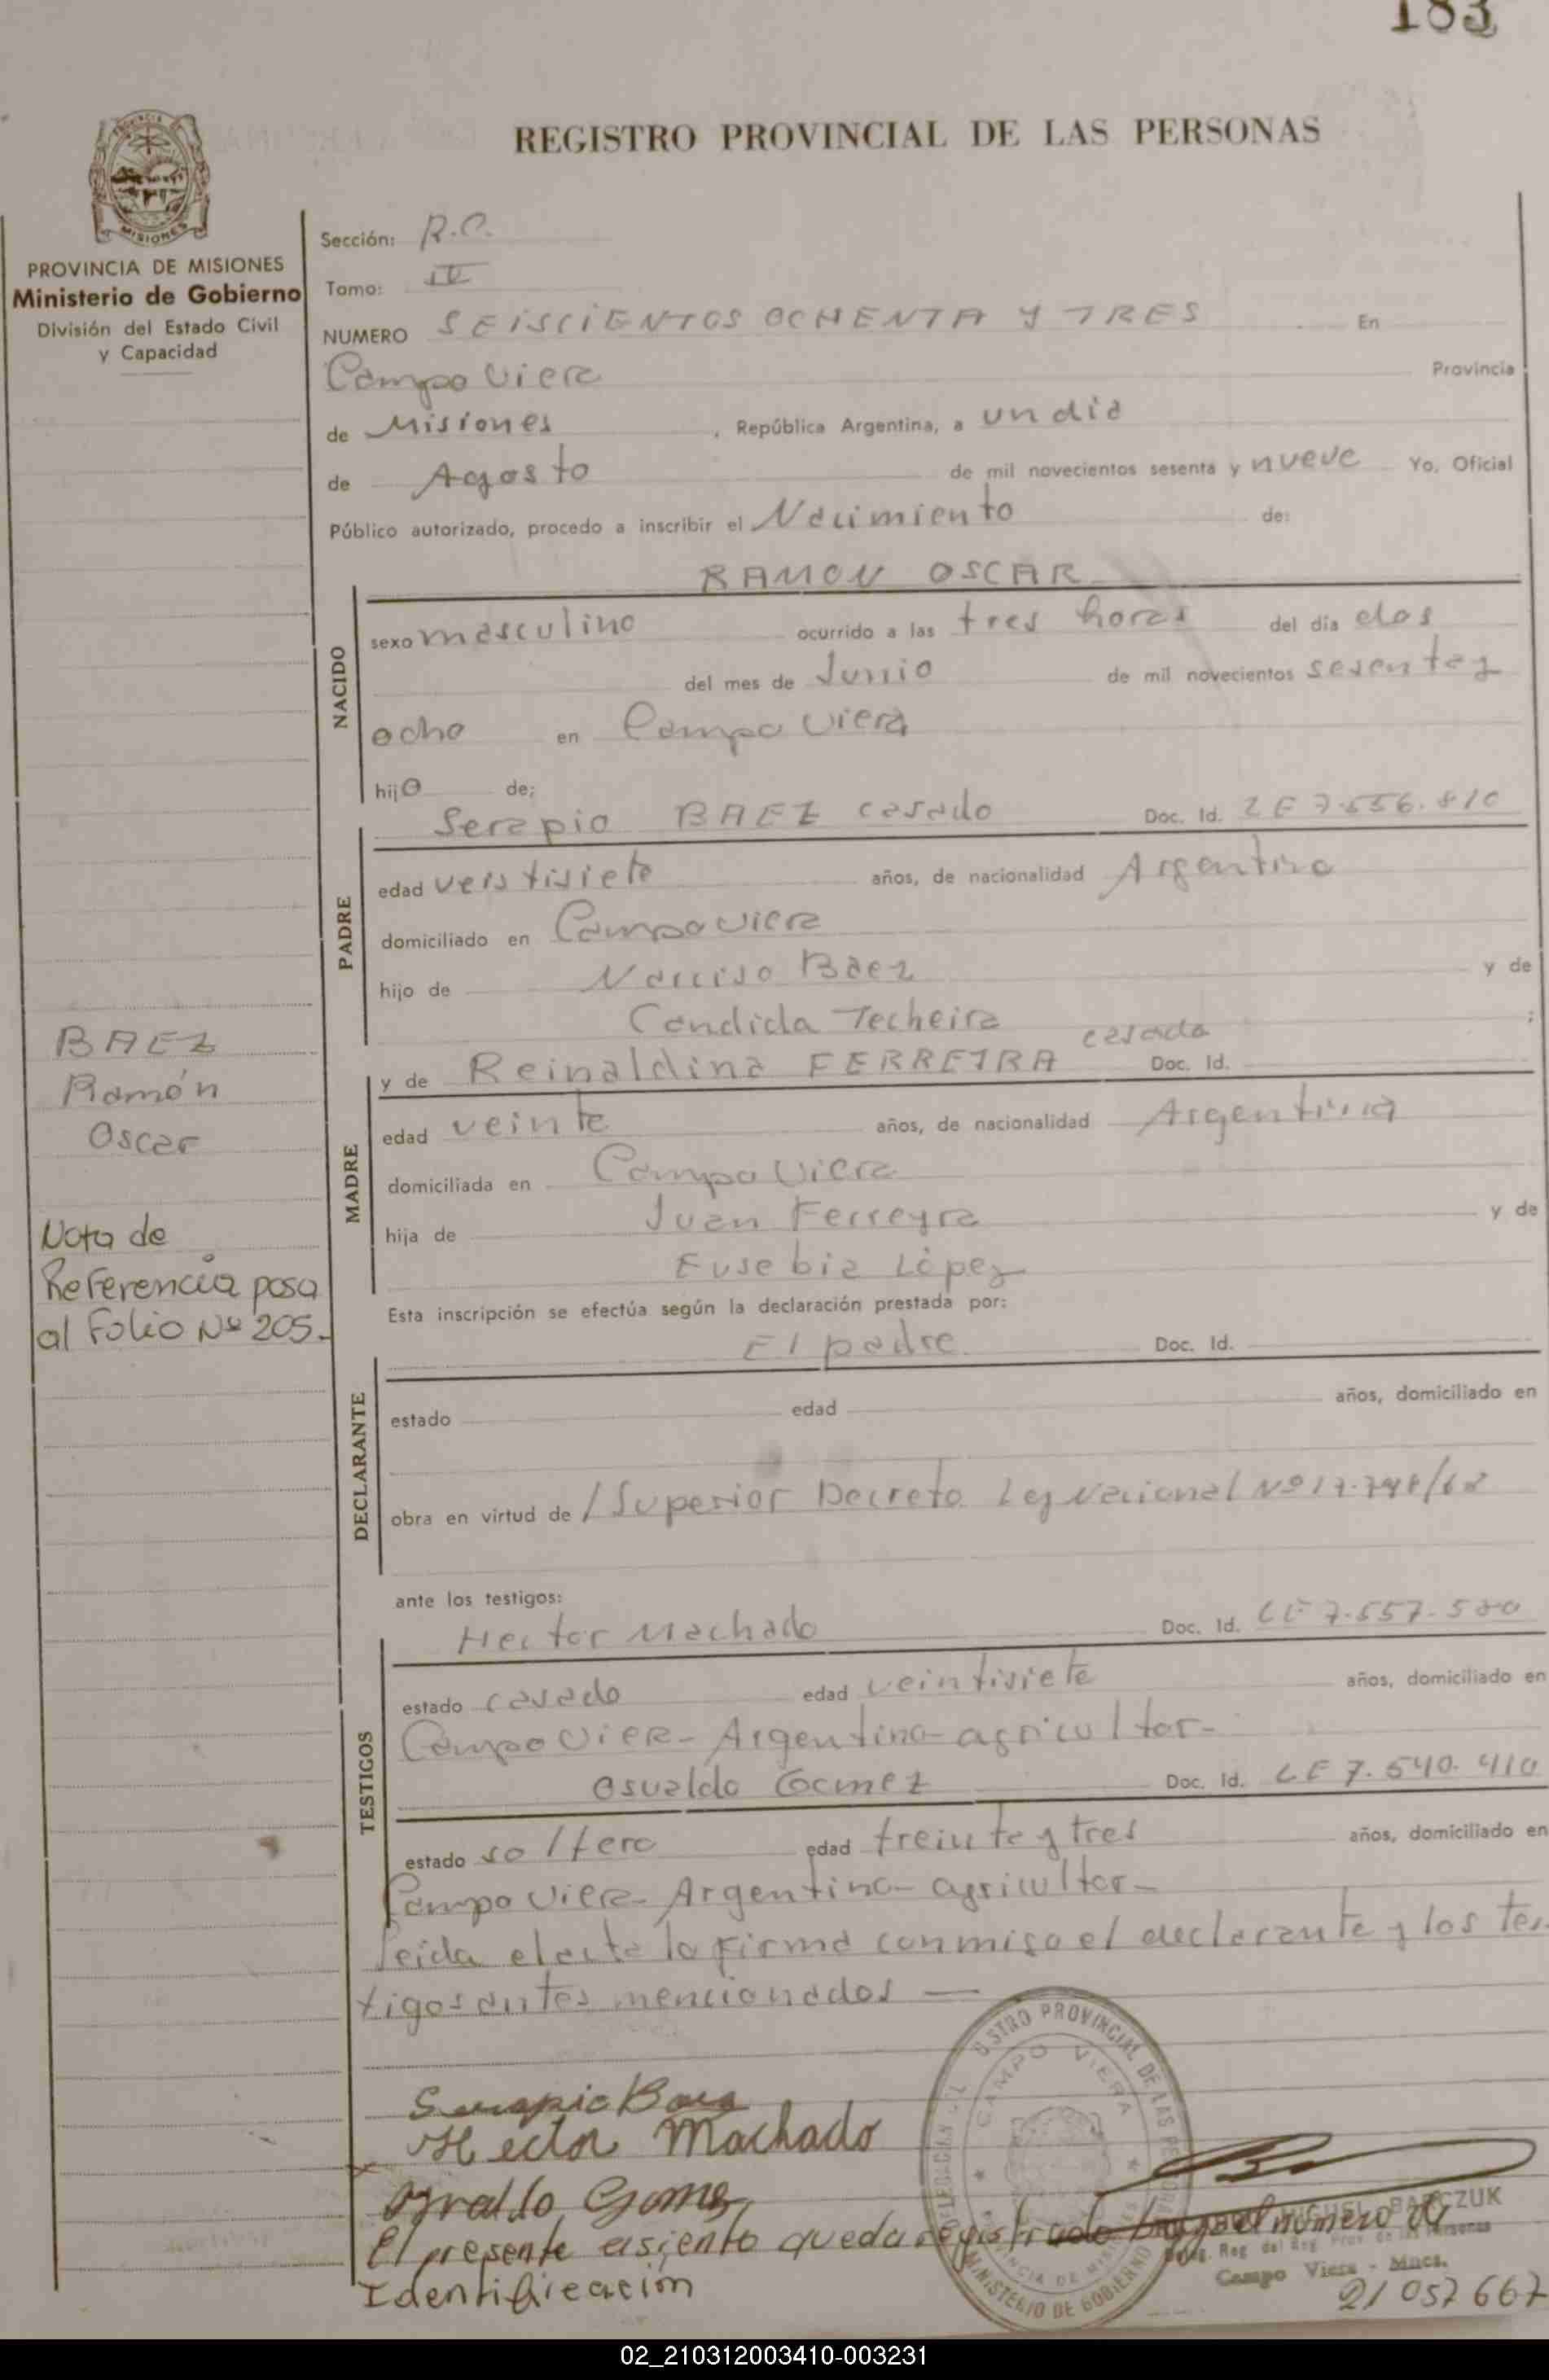 183
REGISTRO PROVINCIAL DE LAS PERSONAS
PROVINCIA
MISIONES
PROVINCIA DE MISIONES
Ministerio de Gobierno
División del Estado Civil
y Capacidad
Sección: R.C.
Tomo: IV
NUMERO SEISCIENTOS OCHENTA Y TRES En
Campo Viera Provincia
de Misiones, República Argentina, a un día
de Agosto de mil novecientos sesenta y nueve Yo, Oficial
Público autorizado, procedo a inscribir el Nacimiento de:
RAMON OSCAR
NACIDO
sexo masculino ocurrido a las tres horas del día dos
del mes de Junio de mil novecientos sesenta y
ocho en Campo Viera
hijo de;
Serapio BAEZ casado Doc. Id. LE 7.556.810
PADRE
edad veistisiete años, de nacionalidad Argentino
domiciliado en Campo Viera
hijo de Narciso Báez y de
Candida Techeira ;
casada
y de Reinaldina FERREIRA Doc. Id.
MADRE
edad veinte años, de nacionalidad Argentina
domiciliada en Campo Viera
hija de Juan Ferreyra y de
Eusebia López
Esta inscripción se efectúa según la declaración prestada por:
El padre Doc. Id.
DECLARANTE
estado edad años, domiciliado en
obra en virtud de /Superior Decreto Ley Nacional Nº
ante los testigos:
Hector Machado Doc. Id. LE 7.557.580
TESTIGOS
estado casado edad veintisiete años, domiciliado en
Campo Viera- Argentino- agricultor-
Osvaldo Gomez Doc. Id. LE 7.540.410
estado soltero edad treinta y tres años, domiciliado en
Campo Viera- Argentino- agricultor-
leida el acta la firma conmigo el declarante y los tes
tigos antes mencionados —
BAEZ
Ramón
Oscar
Nota de
Referencia pasa
al Folio Nº 205.-
Serapio Baez
Hector Machado
Osvaldo Gomez
El presente asiento queda registrado bajo el número de
Identificación
21 057 667
REGISTRO PROVINCIAL DE LAS PERSONAS
CAMPO VIERA
PROVINCIA DE MISIONES
MINISTERIO DE GOBIERNO
MIGUEL BARCZUK
Deleg. Reg. del Reg. Prov. de las Personas
Campo Viera - Mnes.
02_210312003410-003231